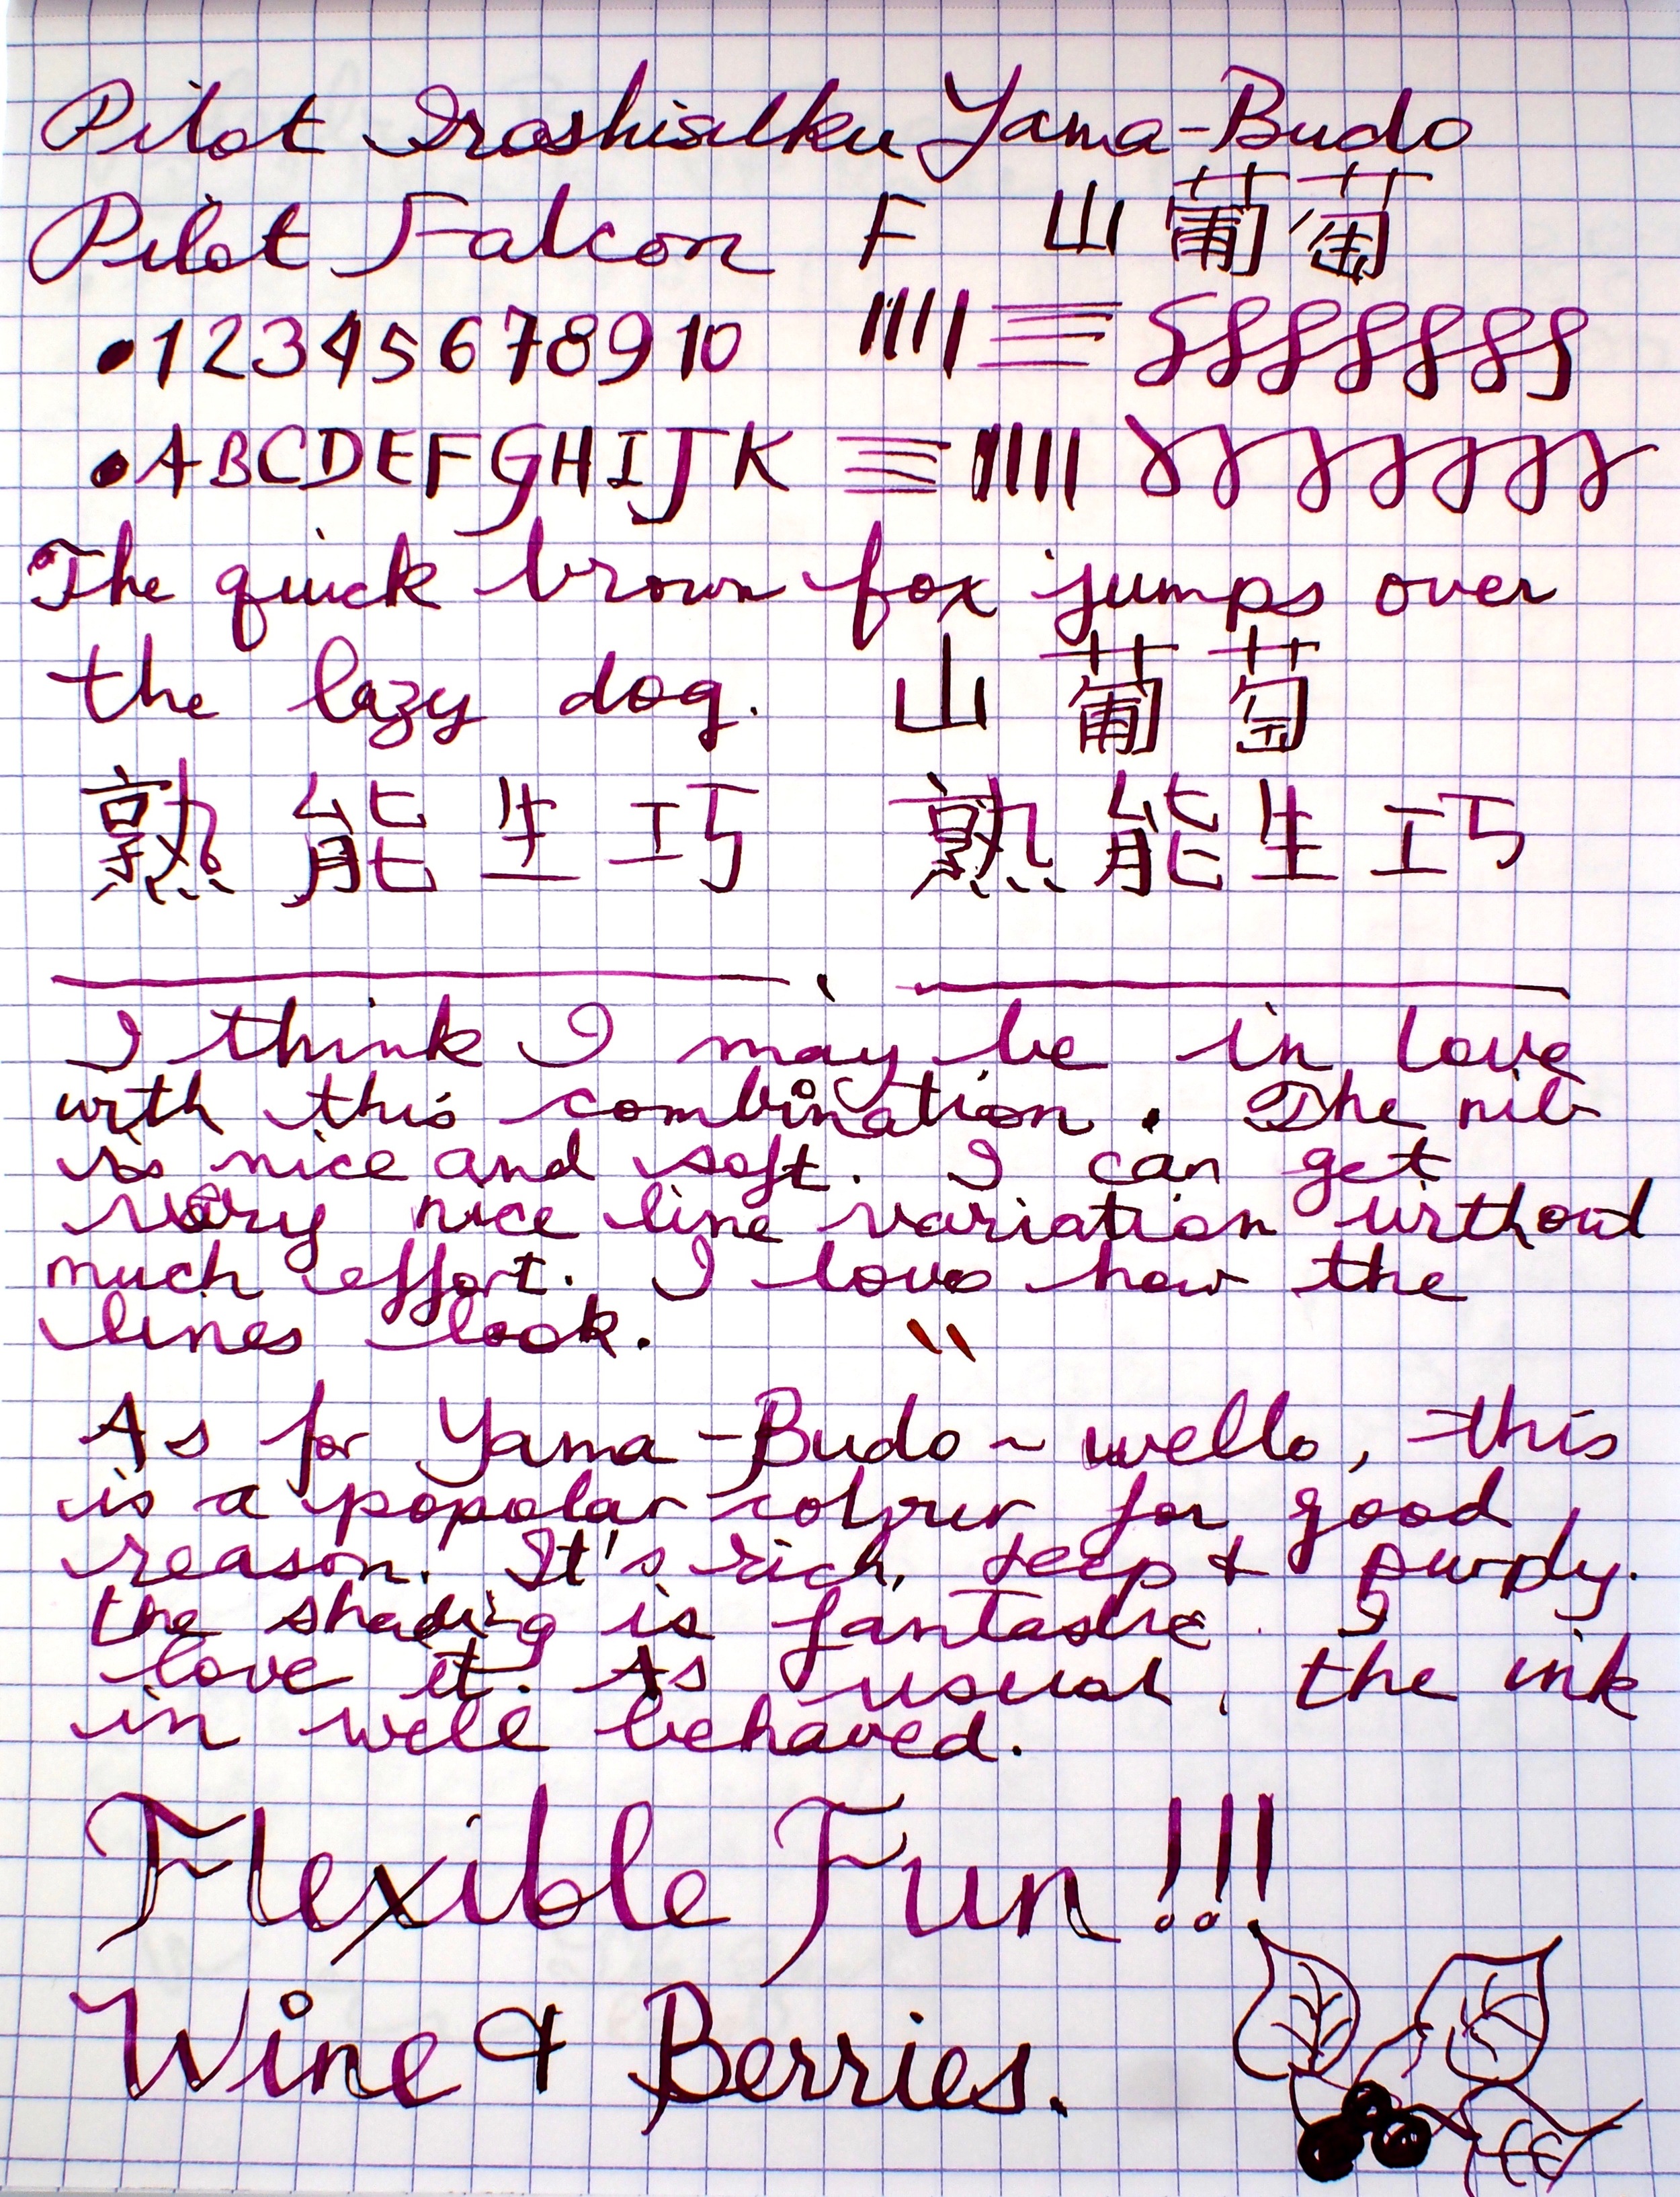 Pilot Iroshizuku Yama-Budo
Pilot Falcon F 山葡萄
1 2 3 4 5 6 7 8 9 10
A B C D E F G H I J K
The quick brown fox jumps over
the lazy dog. 山葡萄
熟能生巧 熟能生巧
I think I may be in love
with this combination. The nib
is nice and soft. I can get
very nice line variation without
much effort. I love how the
lines look.
As for Yama-Budo ~ well, this
is a popolar colour for good
reason. It's rich, deep & purply.
the shading is fantastic. I
love it. As usual, the ink
in well behaved.
Flexible Fun!!!
Wine & Berries.